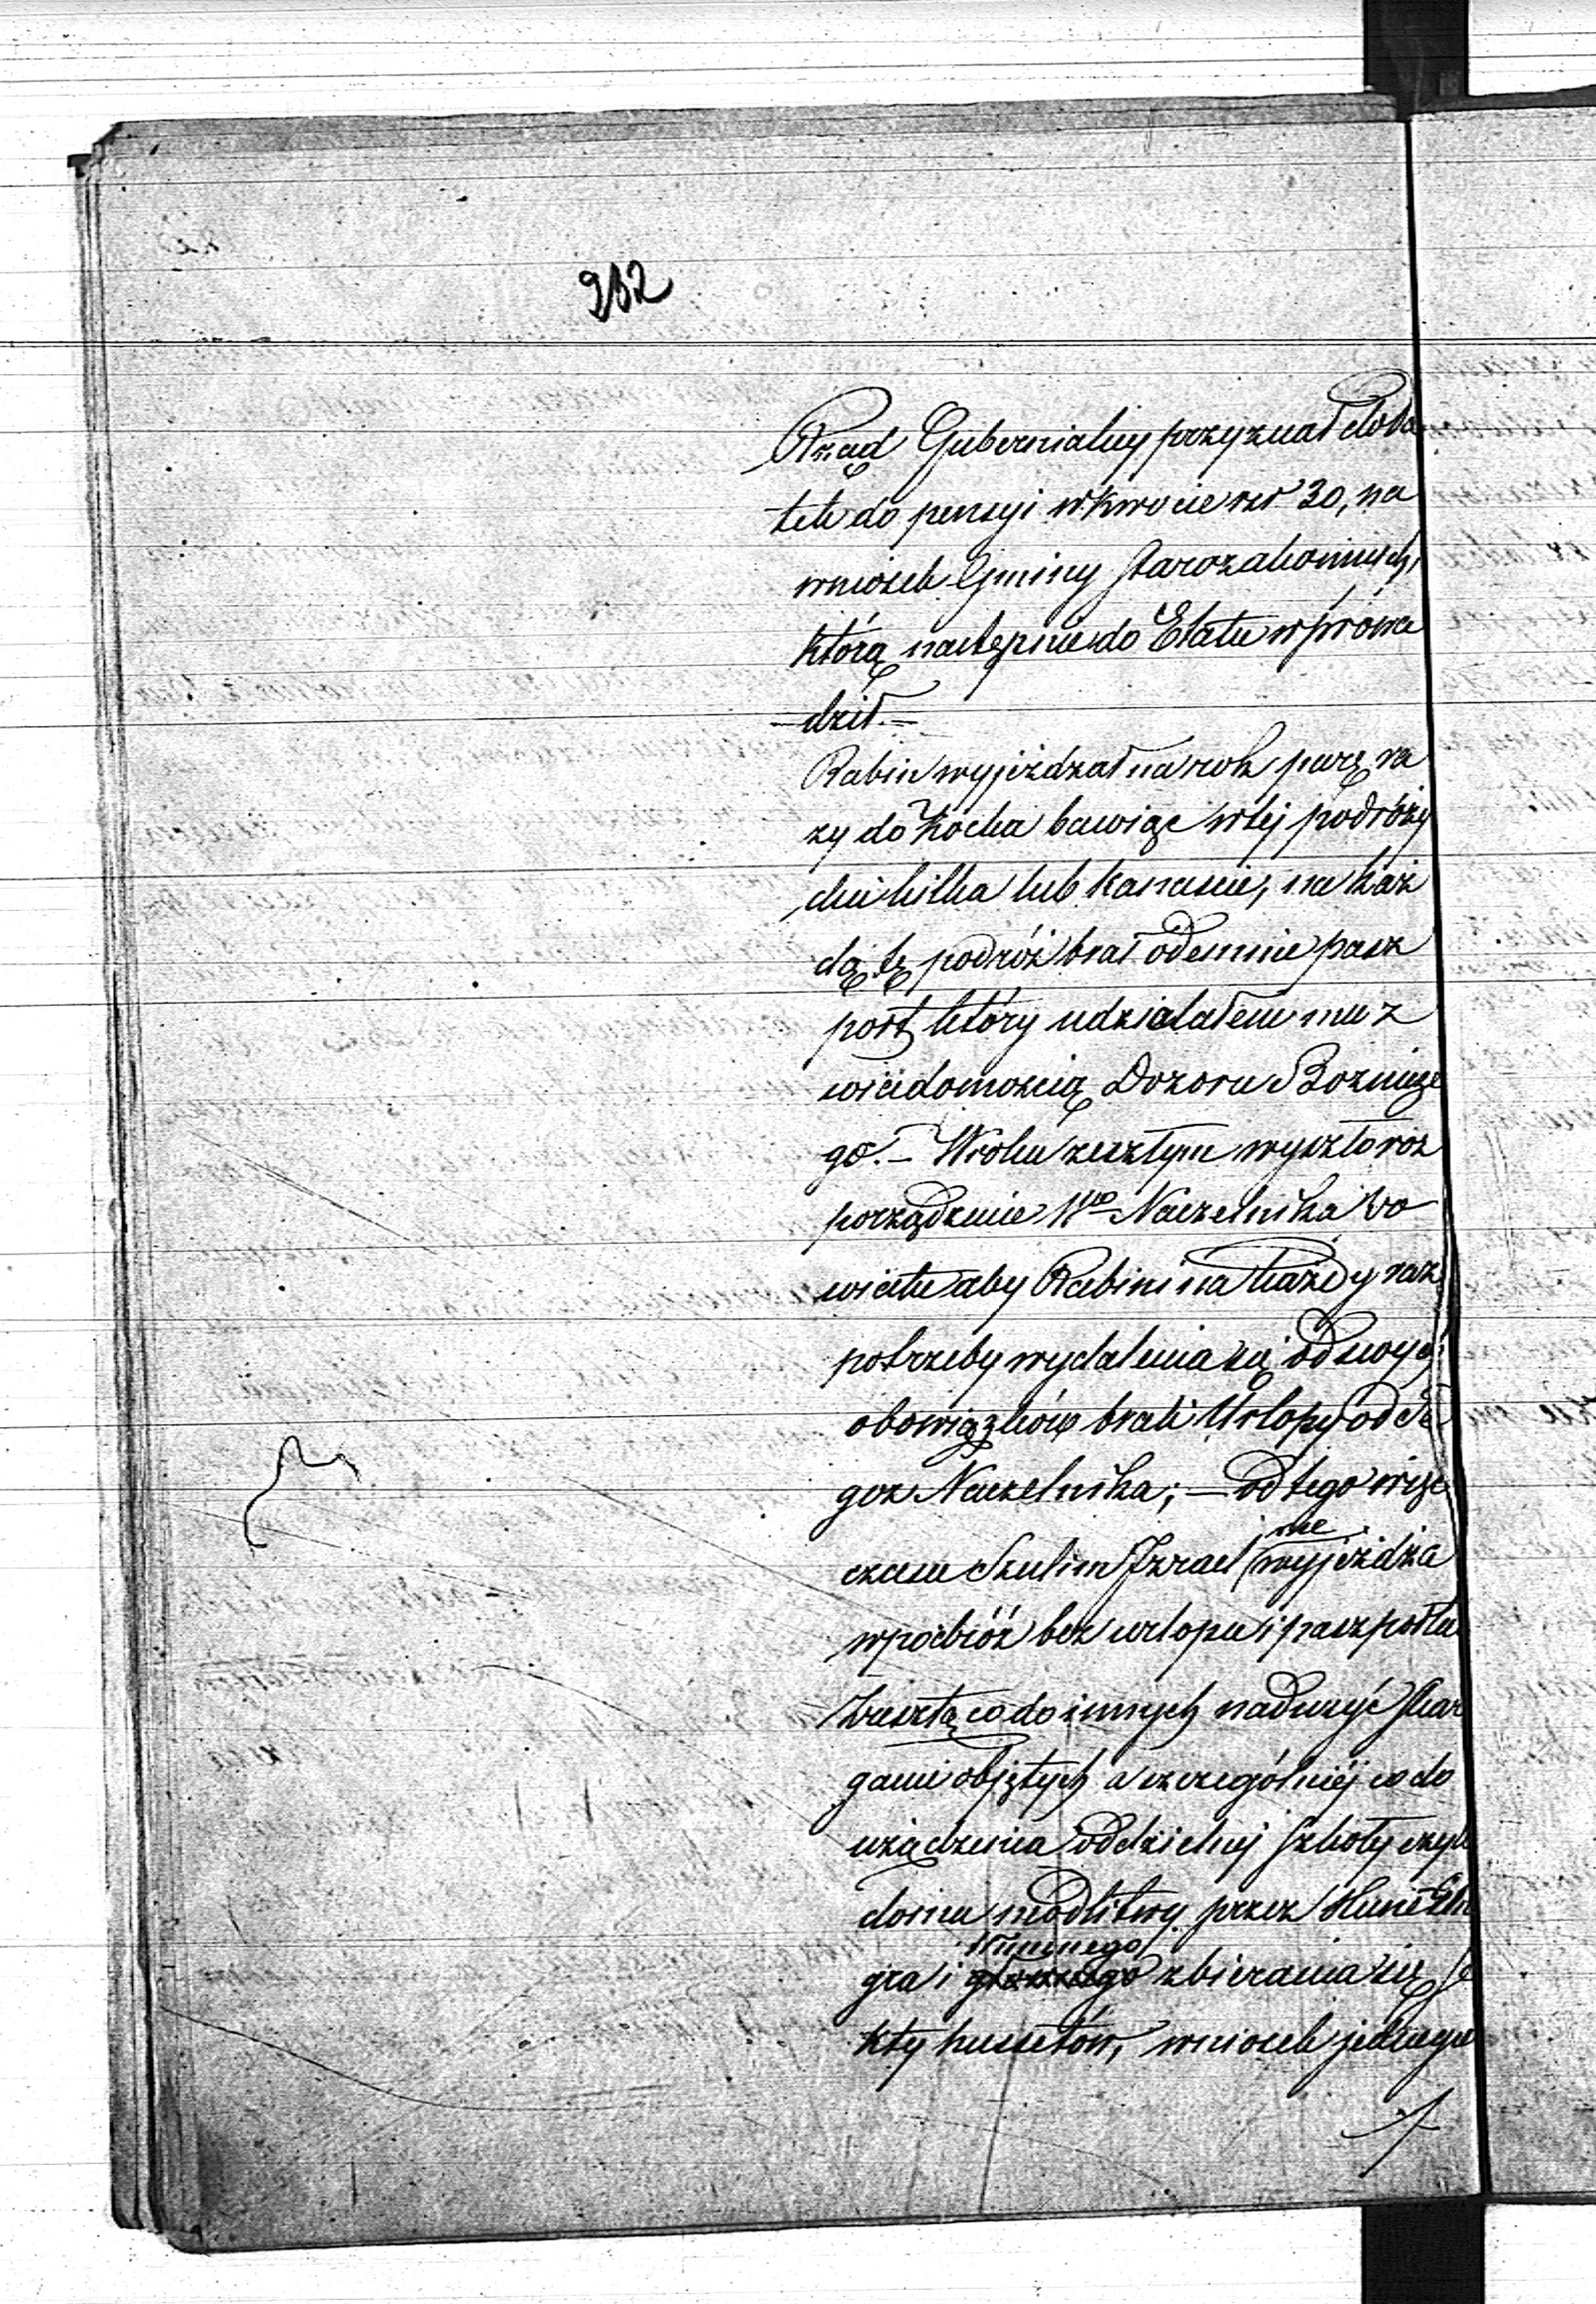 232
Rząd Gubernialny przyznał doda
tek do pensyi w kwocie rsr 30, na
wniosek Gminy Starozakonnych,
którą następnie do Etatu wprowa
dził.—
Rabin wyjeżdzał na rok parę ra
zy do Kocka bawiąc w téj podróży
dni kilka lub kanascie, na każ
dą tę podróż brał odemnie pasz
port który udzielałem mu z
wiadomością Dozoru Bożnicze
go.— W roku zeszłym wyszło roz
porządzenie Wgo Naczelnika Po
wiatu aby Rabini na każdy raz
potrzeby wydalenia się od swych
obowiązków brali Urlopy od Te
goz Naczelnika; — od tego więc
czasu Szulim Izrael nie wyjeżdza
w podróż bez urlopu i paszportu
Zresztą co do innych nadużyć skar
gami objętych a szczególniéj co do
urządzenia oddzielnej szkoły czyli
domu modlitwy przez
gra i tłumnego zbierania się se
kty hussetów, wniosek jednego